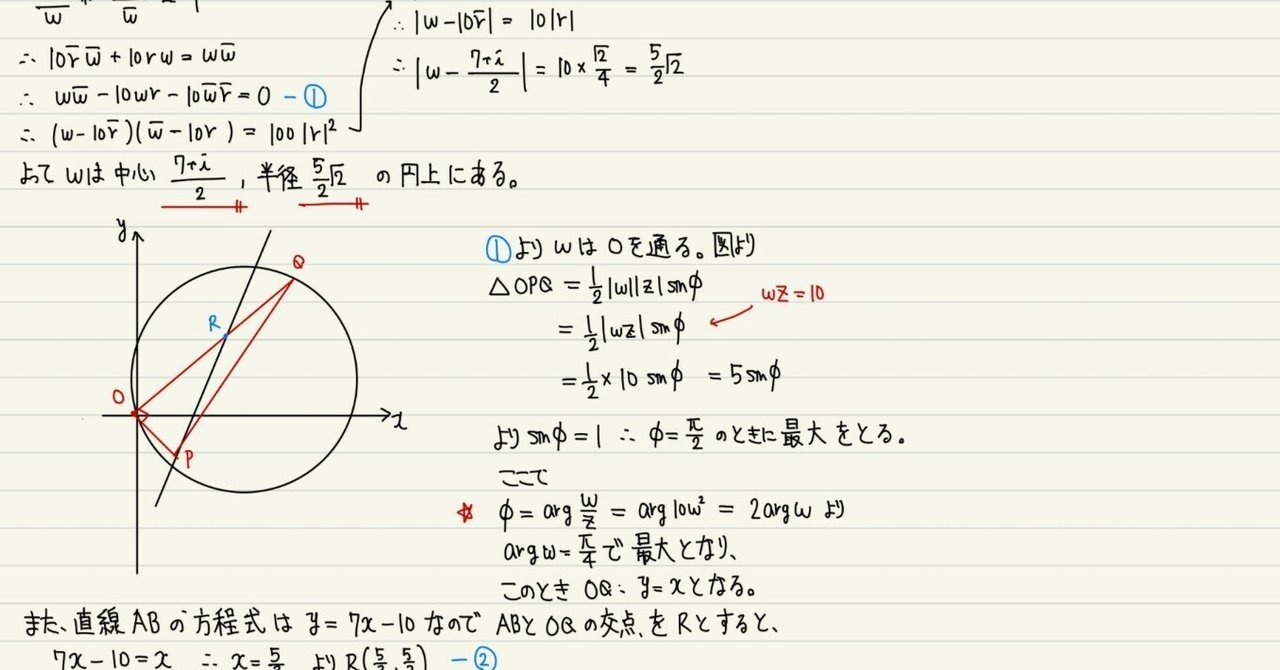 w̄ w̄
∴ 10r̄w̄ + 10rw = ww̄
∴ ww̄ - 10wr - 10w̄r̄ = 0 - ①
∴ (w-10r̄)(w̄-10r) = 100|r|²
∴ |w-10r̄| = 10|r|
∴ |w - (7+i)/2| = 10 × √2/4 = 5/2√2
よって wは 中心 (7+i)/2, 半径 5/2√2 の円上にある。
y
Q
R
O
x
P
①より wは Oを通る。図より
△OPQ = 1/2|w||z|sinφ
= 1/2|wz|sinφ
wz=10
= 1/2×10 sinφ = 5sinφ
より sinφ=1 ∴ φ=π/2 のときに最大をとる。
ここで
☆ φ = arg w/z = arg10w² = 2argw より
argw=π/4で最大となり、
このとき OQ: y=xとなる。
また、直線ABの方程式は y=7x-10なので ABとOQの交点をRとすると、
7x-10=x ∴ x=5/3 より R(5/3,5/3) -②